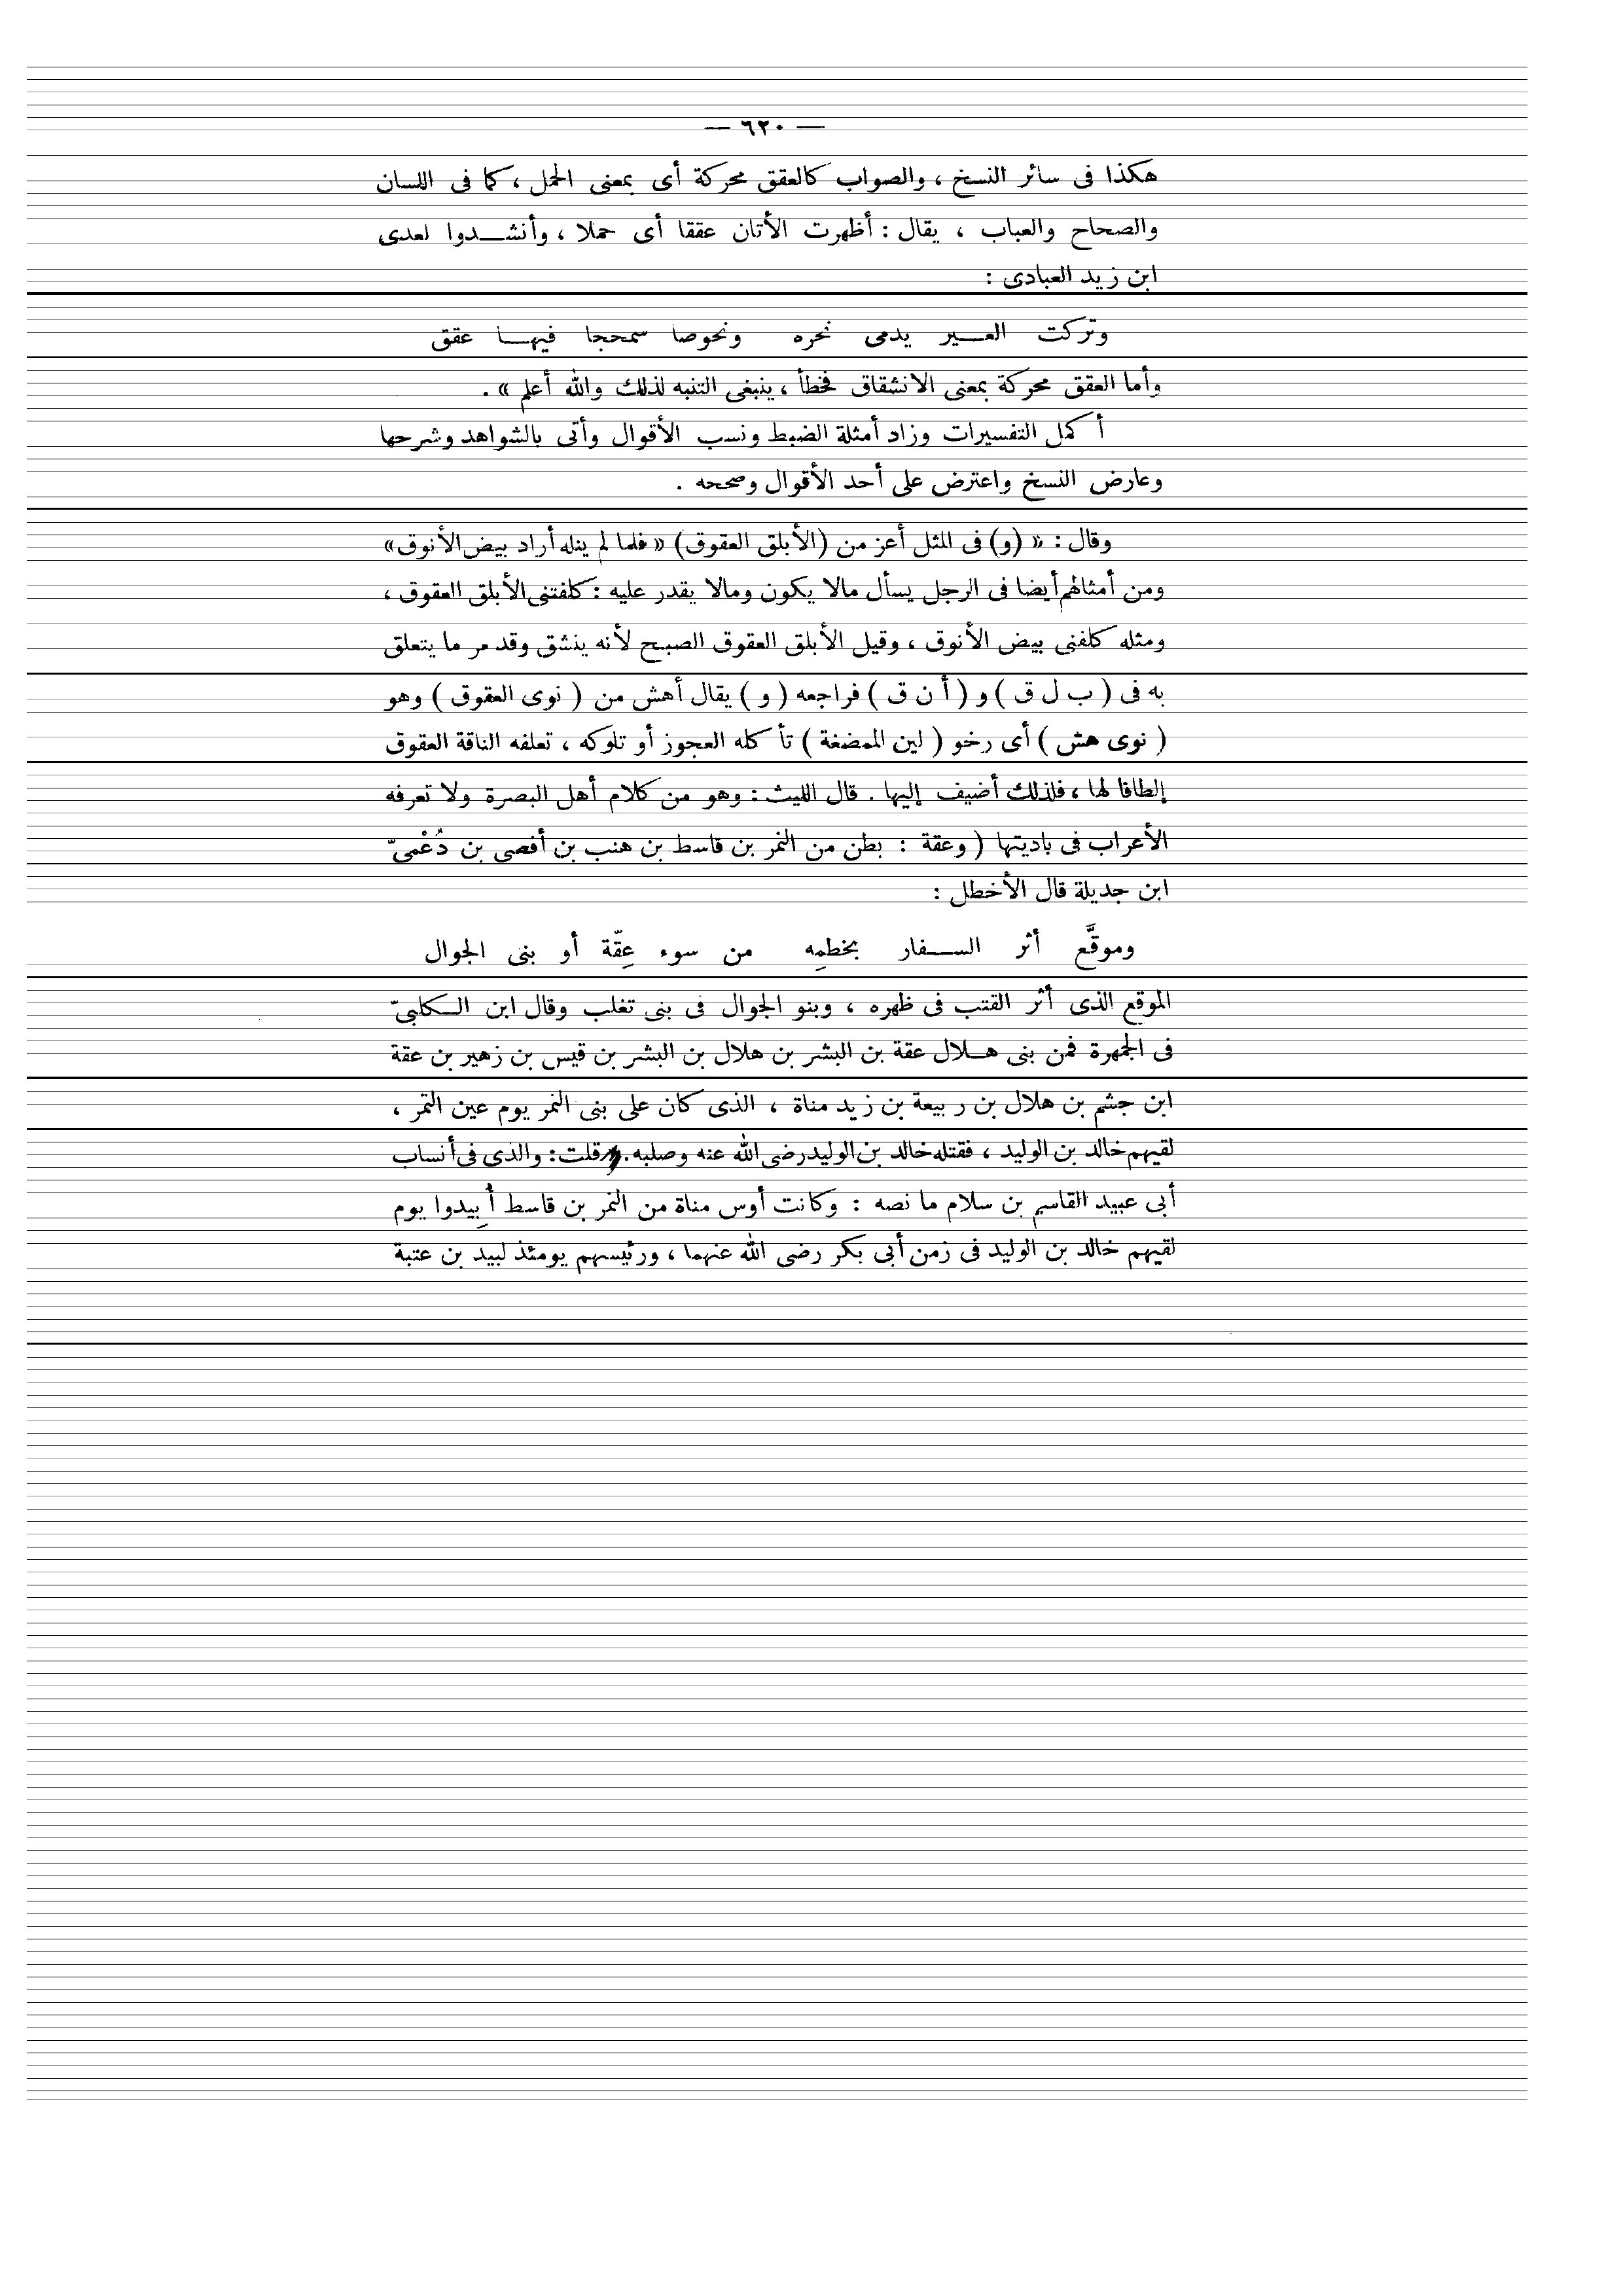 — ٦٢٠ —
هكذا فى سائر النسخ ، والصواب كالعقق محركة أى بمعنى الحمل ، كما فى اللسان
والصحاح والعباب ، يقال : أظهرت الأتان عققا أى حملا ، وأنشـــدوا لعدى
ابن زيد العبادى :
وتركت العـــير يدمى نحره ونحوصا سمحجا فيهـــا عقق
وأما العقق محركة بمعنى الانشقاق فخطأ ، ينبغى التنبه لذلك والله أعلم » .
أكمل التفسيرات وزاد أمثلة الضبط ونسب الأقوال وأتى بالشواهد وشرحها
وعارض النسخ واعترض على أحد الأقوال وصححه .
وقال : « (و) فى المثل أعز من (الأبلق العقوق) « فلما لم ينله أراد بيض الأنوق»
ومن أمثالهم أيضا فى الرجل يسأل مالا يكون ومالا يقدر عليه : كلفتنى الأبلق العقوق ،
ومثله كلفنى بيض الأنوق ، وقيل الأبلق العقوق الصبح لأنه ينشق وقد مر ما يتعلق
به فى ( ب ل ق ) و ( أ ن ق ) فراجعه ( و ) يقال أهش من ( نوى العقوق ) وهو
( نوى هش ) أى رخو ( لين الممضغة ) تأكله العجوز أو تلوكه ، تعلفه الناقة العقوق
إلطافا لها ، فلذلك أضيف إليها . قال الليث : وهو من كلام أهل البصرة ولا تعرفه
الأعراب فى باديتها ( وعقة : بطن من النمر بن قاسط بن هنب بن أفصى بن دُعْمىّ
ابن جديلة قال الأخطل :
وموقَّع أثر الســـفار بخطمِه من سوء عِقّة أو بنى الجوال
الموقع الذى أثر القتب فى ظهره ، وبنو الجوال فى بنى تغلب وقال ابن الـكلبىّ
فى الجمهرة فمن بنى هـلال عقة بن البشر بن هلال بن البشر بن قيس بن زهير بن عقة
ابن جشم بن هلال بن ربيعة بن زيد مناة ، الذى كان على بنى النمر يوم عين التمر ،
لقيهم خالد بن الوليد ، فقتله خالد بن الوليد رضى الله عنه وصلبه . قلت : والذى فى أنساب
أبى عبيد القاسم بن سلام ما نصه : وكانت أوس مناة من النمر بن قاسط أُبِيدوا يوم
لقيهم خالد بن الوليد فى زمن أبى بكر رضى الله عنهما ، ورئيسهم يومئذ لبيد بن عتبة